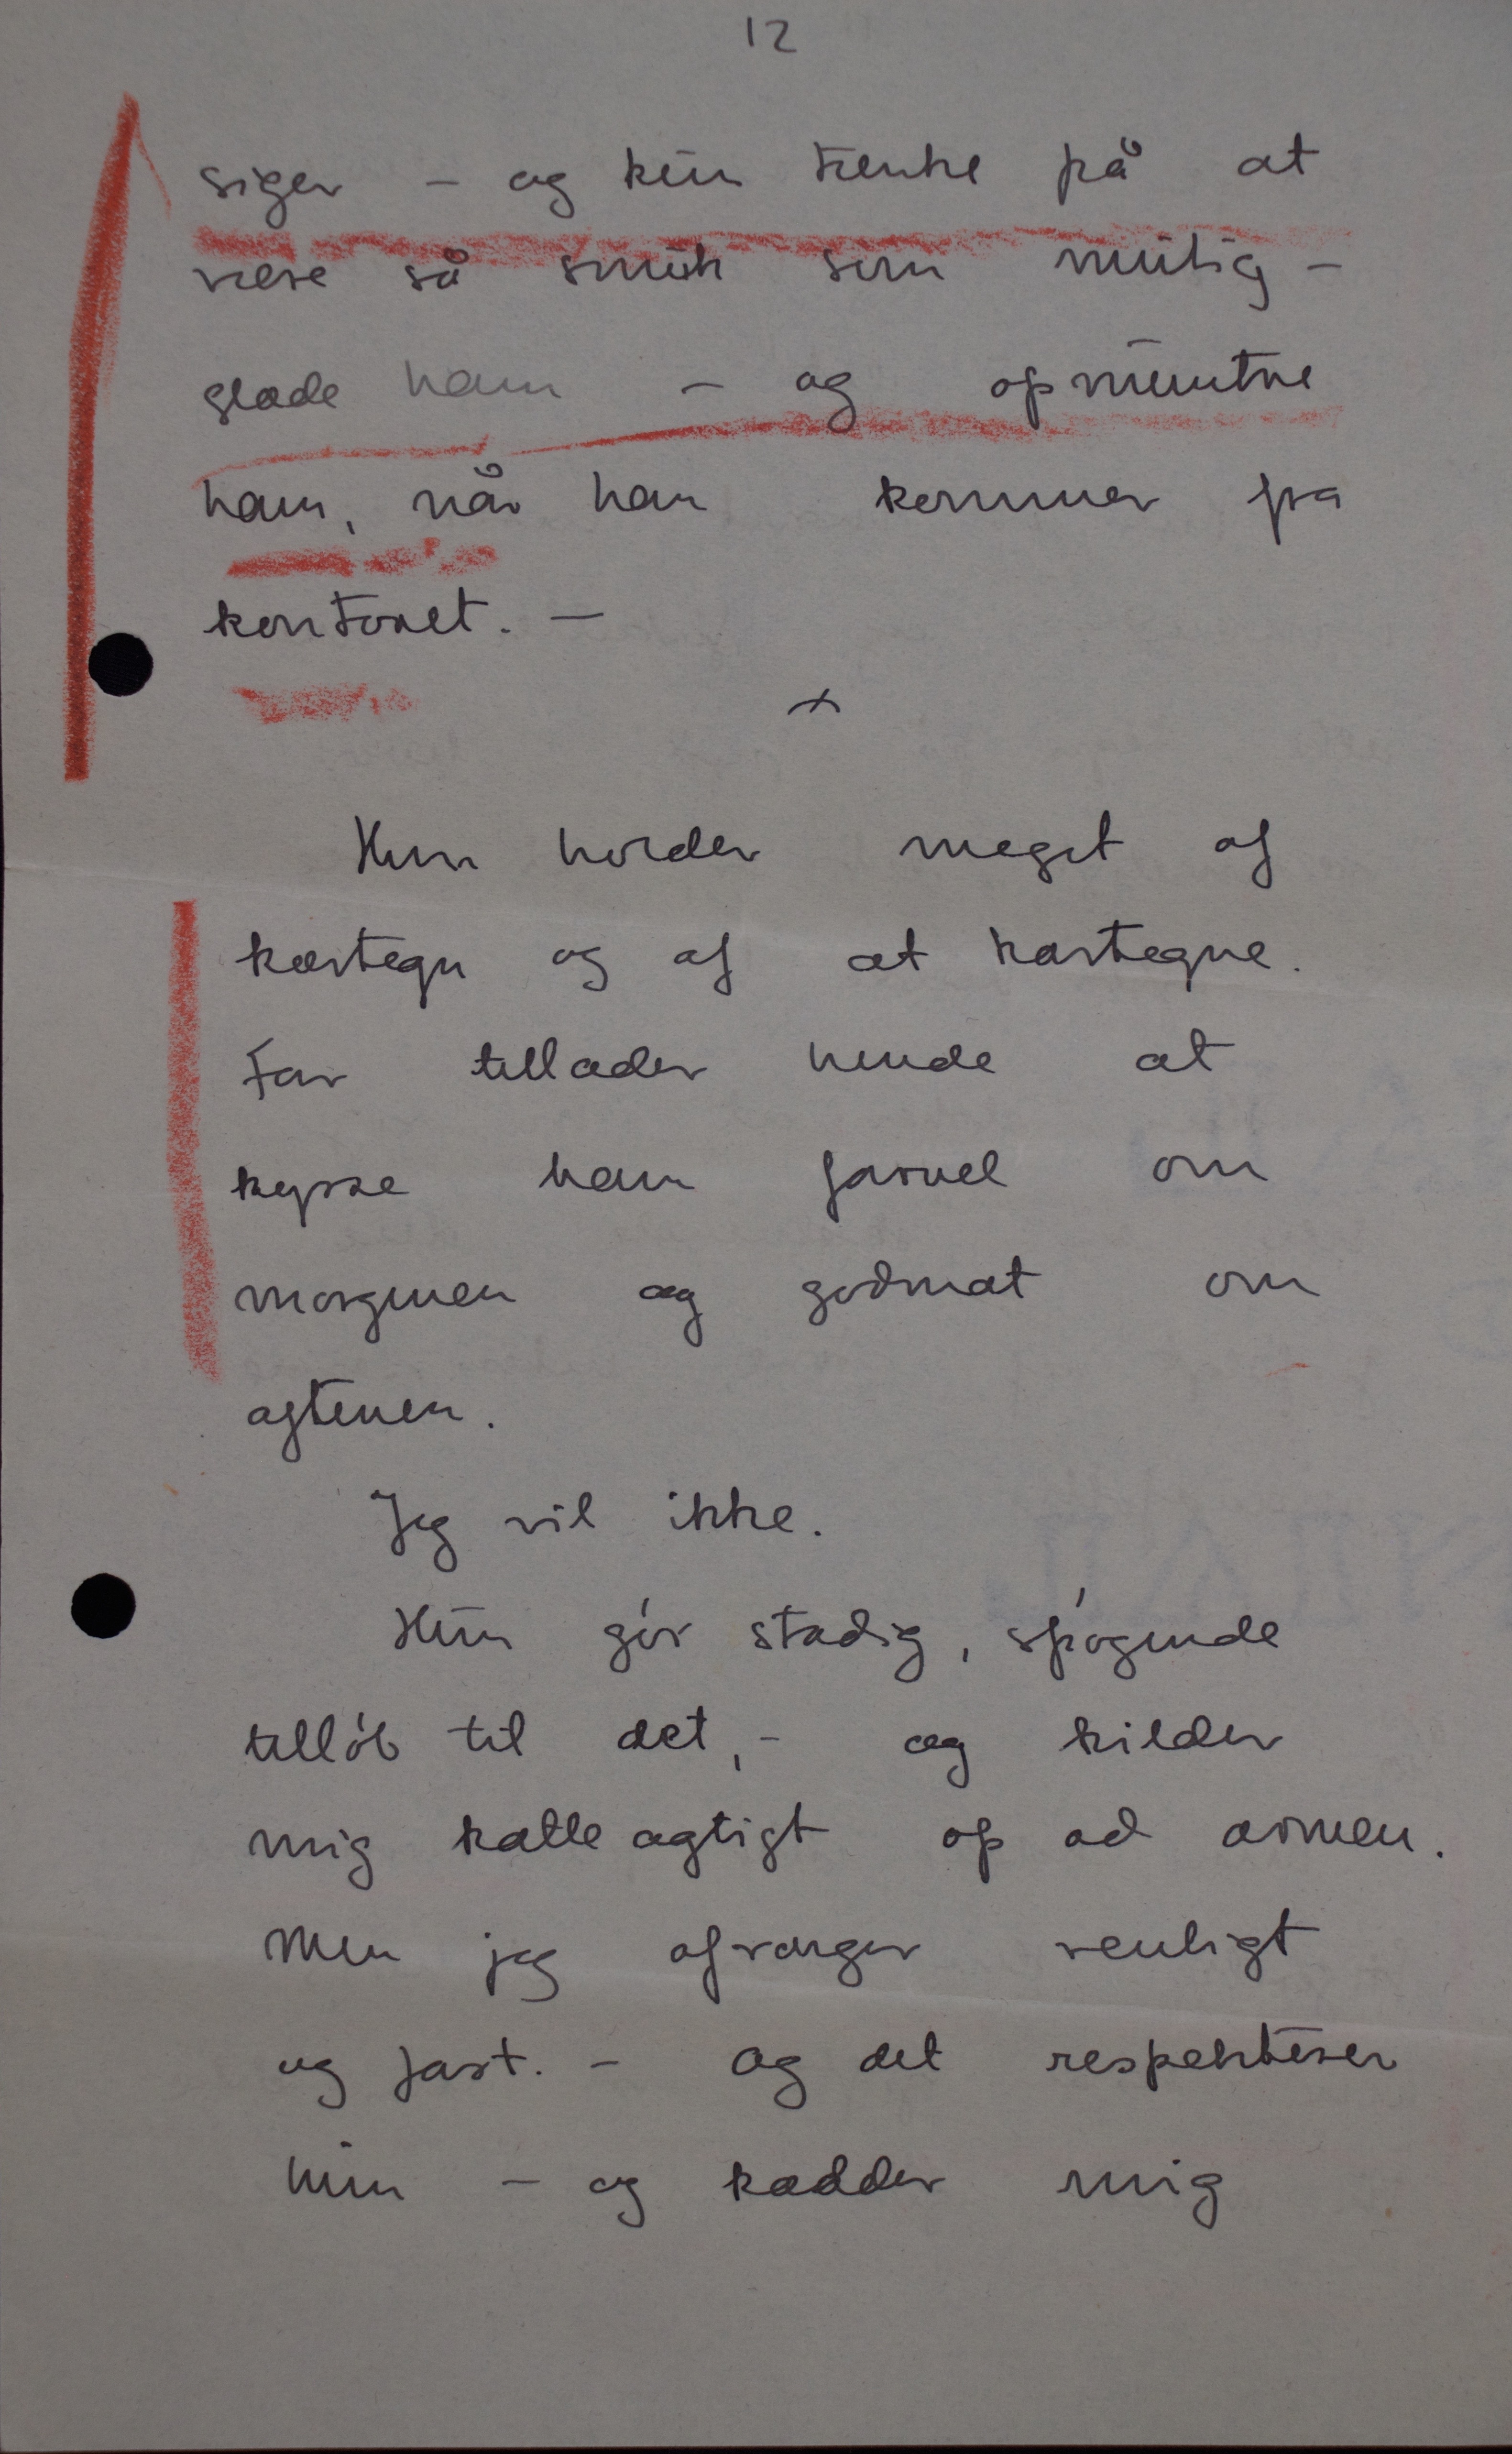 12
siger – og kun tænke på at
være så smuk som mulig –
glæde ham – og opmuntre
ham, når han kommer fra
kontoret. –
x
Hun holder meget af
kærtegn og af at kærtegne.
Far tillader hende at
kysse ham farvel om
morgnen og godnat om
aftenen.
Jeg vil ikke.
Hun gør stadig, spøgende
tilløb til det, – og kilder
mig katteagtigt op ad armen.
Men jeg afviser venligt
og fast. – og det respekterer
hun – og kalder mig